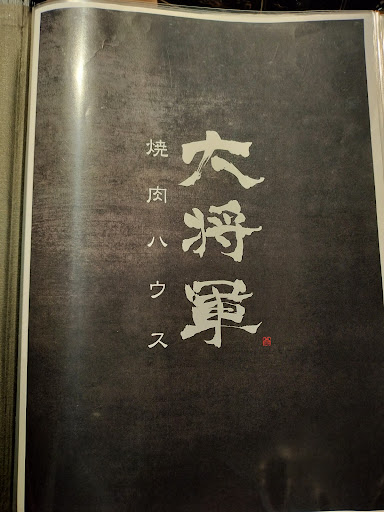 大将軍
焼肉ハウス